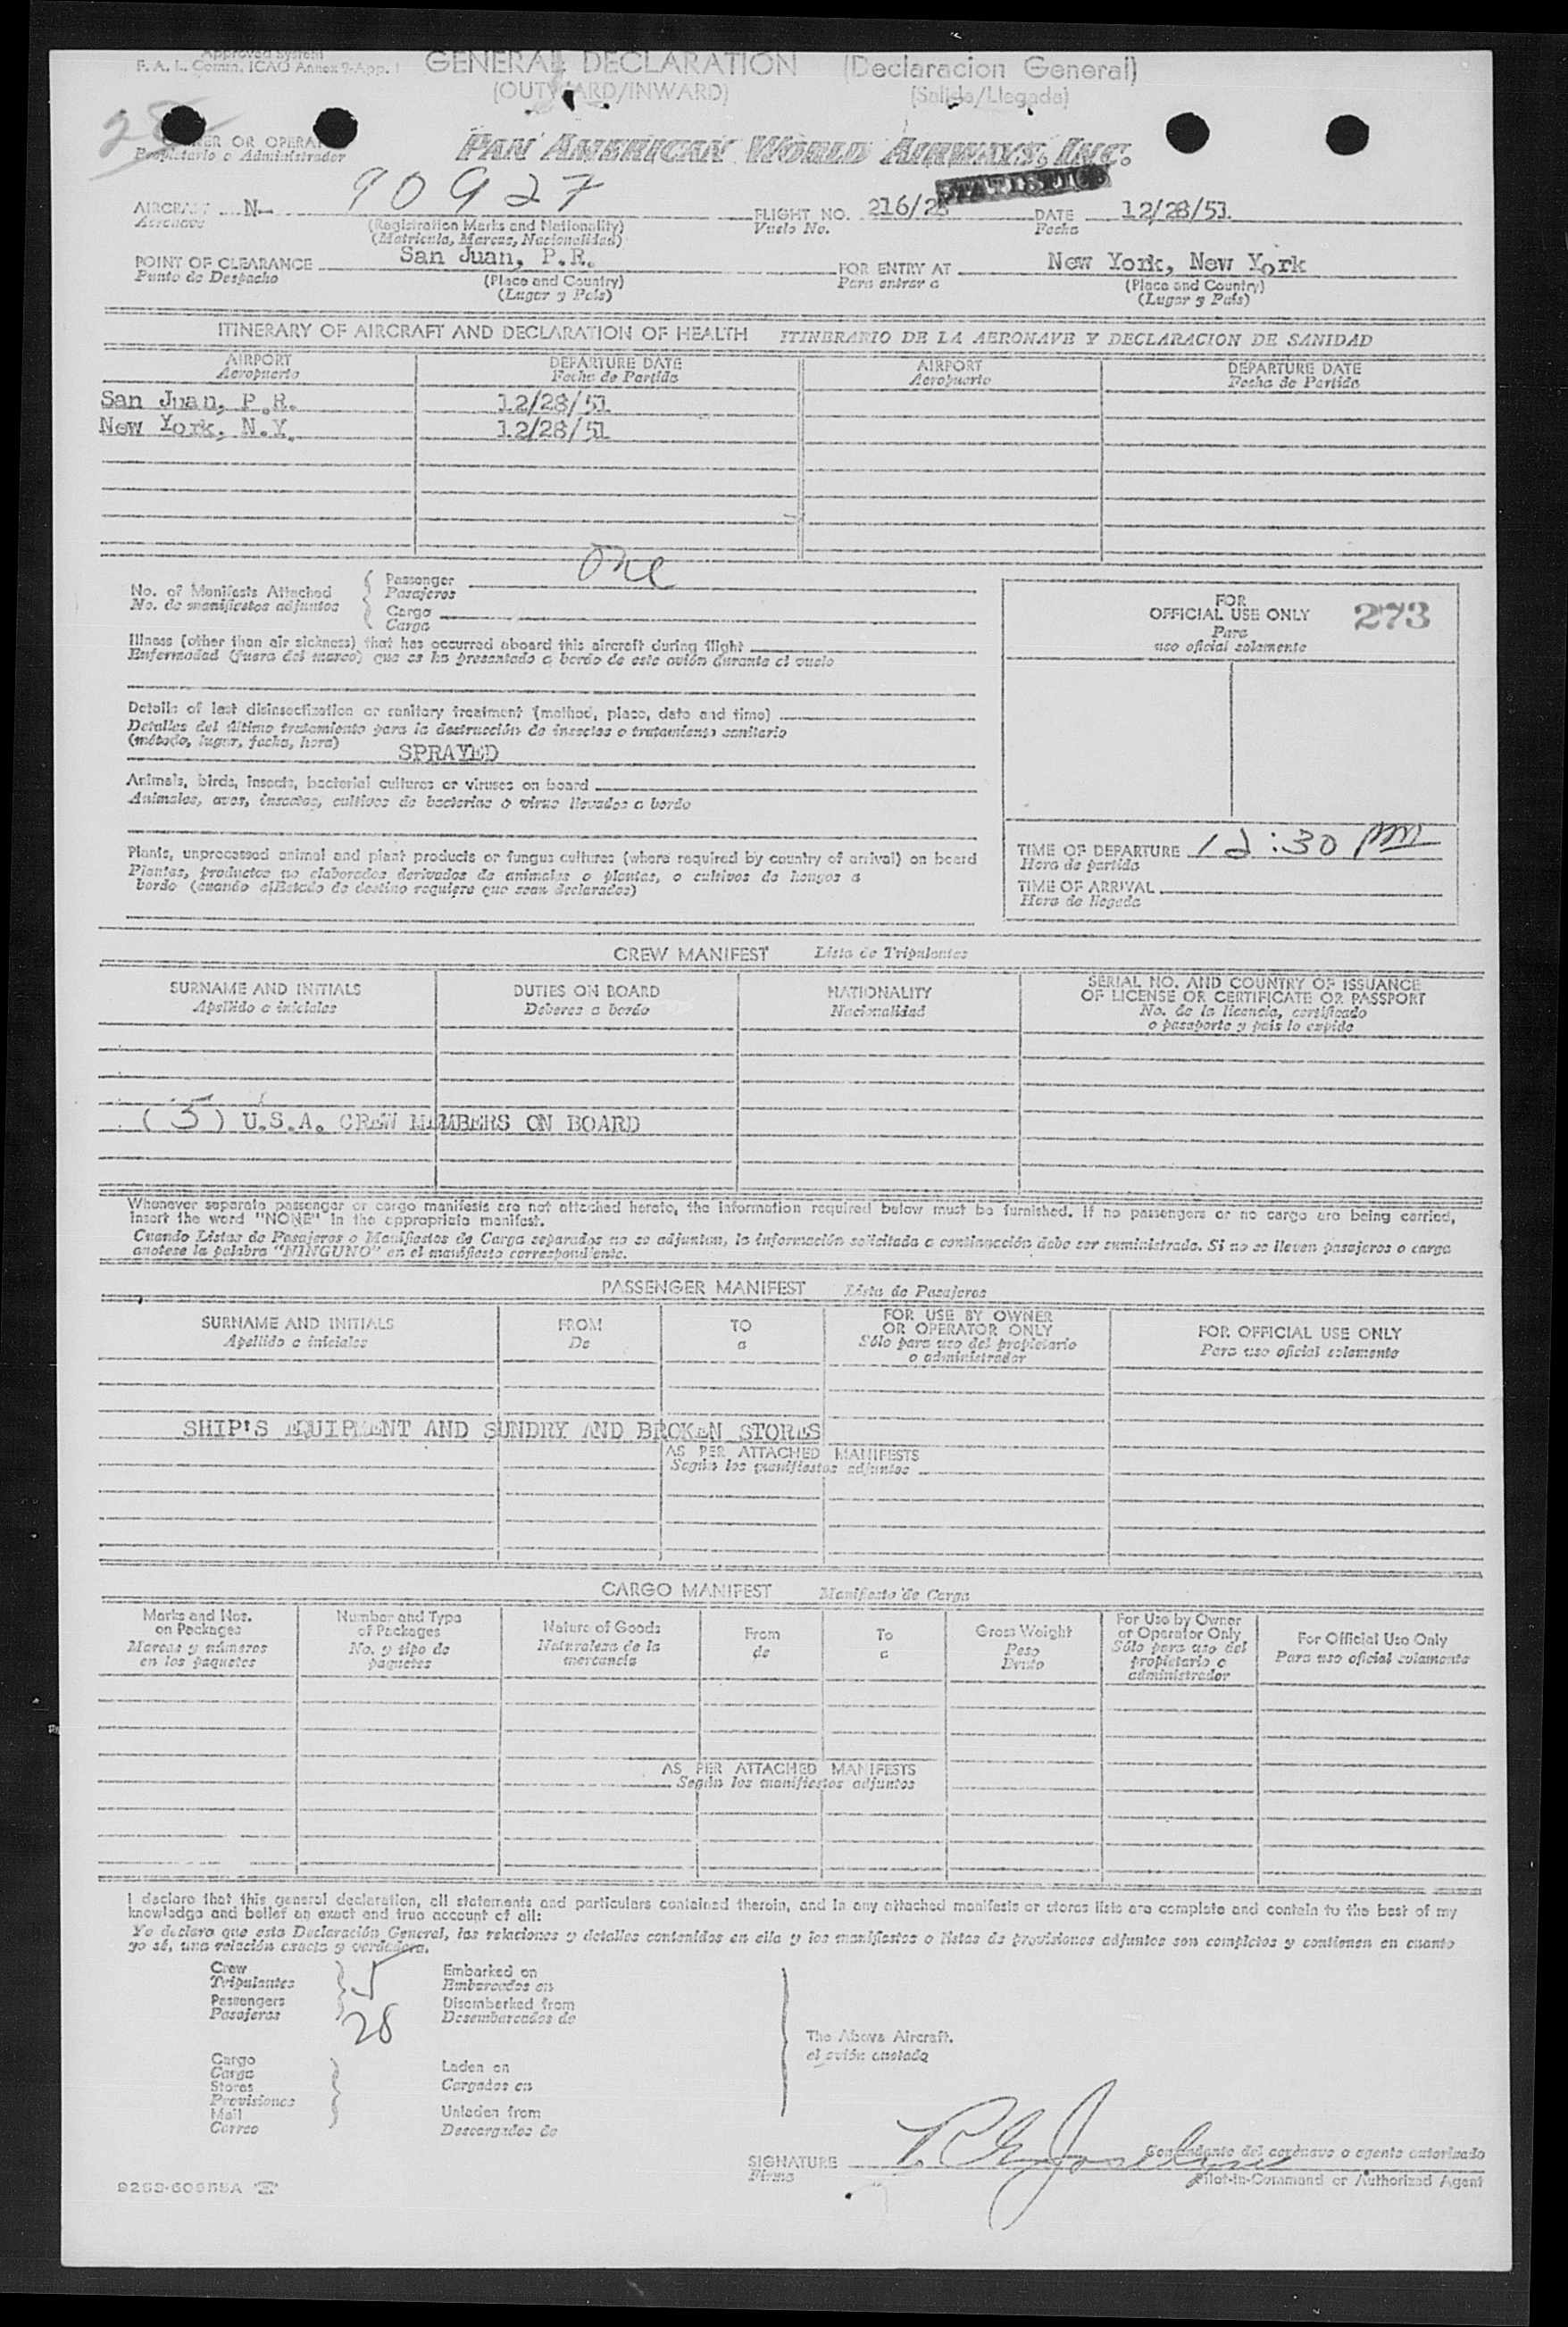 Approved System
F. A. L. Comm. ICAO Annex 9-App. 1
GENERAL DECLARATION (Declaracion General)
(OUTWARD/INWARD) (Salida/Llegada)
28
OWNER OR OPERATOR
Propietario o Administrador
PAN AMERICAN WORLD AIRWAYS, INC.
STATISTICS
AIRCRAFT N- 90927 FLIGHT NO. 216/28 DATE 12/28/51
Aeronave (Registration Marks and Nationality) Vuelo No. Fecha
(Matricula, Marcas, Nacionalidad)
POINT OF CLEARANCE San Juan, P.R. FOR ENTRY AT New York, New York
Punto de Despacho (Place and Country) Para entrar a (Place and Country)
(Lugar y País) (Lugar y País)
ITINERARY OF AIRCRAFT AND DECLARATION OF HEALTH ITINERARIO DE LA AERONAVE Y DECLARACION DE SANIDAD
AIRPORT DEPARTURE DATE AIRPORT DEPARTURE DATE
Aeropuerto Fecha de Partida Aeropuerto Fecha de Partida
San Juan, P.R. 12/28/51
New York, N.Y. 12/28/51
No. of Manifests Attached Passenger One
No. de manifiestos adjuntos Pasajeros
Cargo
Carga
FOR
OFFICIAL USE ONLY 273
Para
uso oficial solamente
Illness (other than air sickness) that has occurred aboard this aircraft during flight
Enfermedad (fuera del mareo) que se ha presentado a bordo de este avión durante el vuelo
Details of last disinsectization or sanitary treatment (method, place, date and time)
Detalles del último tratamiento para la destrucción de insectos o tratamiento sanitario
(método, lugar, fecha, hora) SPRAYED
Animals, birds, insects, bacterial cultures or viruses on board
Animales, aves, insectos, cultivos de bacterias o virus llevados a bordo
Plants, unprocessed animal and plant products or fungus cultures (where required by country of arrival) on board
Plantas, productos no elaborados derivados de animales o plantas, o cultivos de hongos a
bordo (cuando el Estado de destino requiere que sean declarados)
TIME OF DEPARTURE 12:30 PM
Hora de partida
TIME OF ARRIVAL
Hora de llegada
CREW MANIFEST Lista de Tripulantes
SURNAME AND INITIALS DUTIES ON BOARD NATIONALITY SERIAL NO. AND COUNTRY OF ISSUANCE
OF LICENSE OR CERTIFICATE OR PASSPORT
Apellido o iniciales Deberes a bordo Nacionalidad No. de la licencia, certificado
o pasaporte y pais lo expide
(5) U.S.A. CREW MEMBERS ON BOARD
Whenever separate passenger or cargo manifests are not attached hereto, the information required below must be furnished. If no passengers or no cargo are being carried,
insert the word "NONE" in the appropriate manifest.
Cuando Listas de Pasajeros o Manifiestos de Carga separados no se adjuntan, la información solicitada a continuación debe ser suministrada. Si no se lleven pasajeros o carga
anotese la palabra "NINGUNO" en el manifiesto correspondiente.
PASSENGER MANIFEST Lista de Pasajeros
SURNAME AND INITIALS FROM TO FOR USE BY OWNER
OR OPERATOR ONLY FOR OFFICIAL USE ONLY
Apellido e iniciales De a Sólo para uso del propietario
o administrador Para uso oficial solamente
SHIP'S EQUIPMENT AND SUNDRY AND BROKEN STORES
AS PER ATTACHED MANIFESTS
Según los manifiestos adjuntos
CARGO MANIFEST Manifiesto de Carga
Marks and Nos.
on Packages
Marcas y números
en los paquetes
Number and Type
of Packages
No. y tipo de
paquetes
Nature of Goods
Naturaleza de la
mercancía
From
de
To
a
Gross Weight
Peso
Bruto
For Use by Owner
or Operator Only
Sólo para uso del
propietario o
administrador
For Official Use Only
Para uso oficial solamente
AS PER ATTACHED MANIFESTS
Según los manifiestos adjuntos
I declare that this general declaration, all statements and particulars contained therein, and in any attached manifests or stores lists are complete and contain to the best of my
knowledge and belief an exact and true account of all:
Yo declaro que esta Declaración General, las relaciones y detalles contenidos en ella y los manifiestos o listas de provisiones adjuntos son completos y contienen en cuanto
yo sé, una relación exacta y verdadera.
Crew 5 Embarked on
Tripulantes Embarcados en
Passengers 28 Disembarked from
Pasajeros Desembarcados de
The Above Aircraft.
el avión anotado
Cargo
Carga Laden on
Stores Cargados en
Provisiones
Mail Unladen from
Correo Descargados de
SIGNATURE Comandante del aeronave o agente autorizado
Firma Pilot-in-Command or Authorized Agent